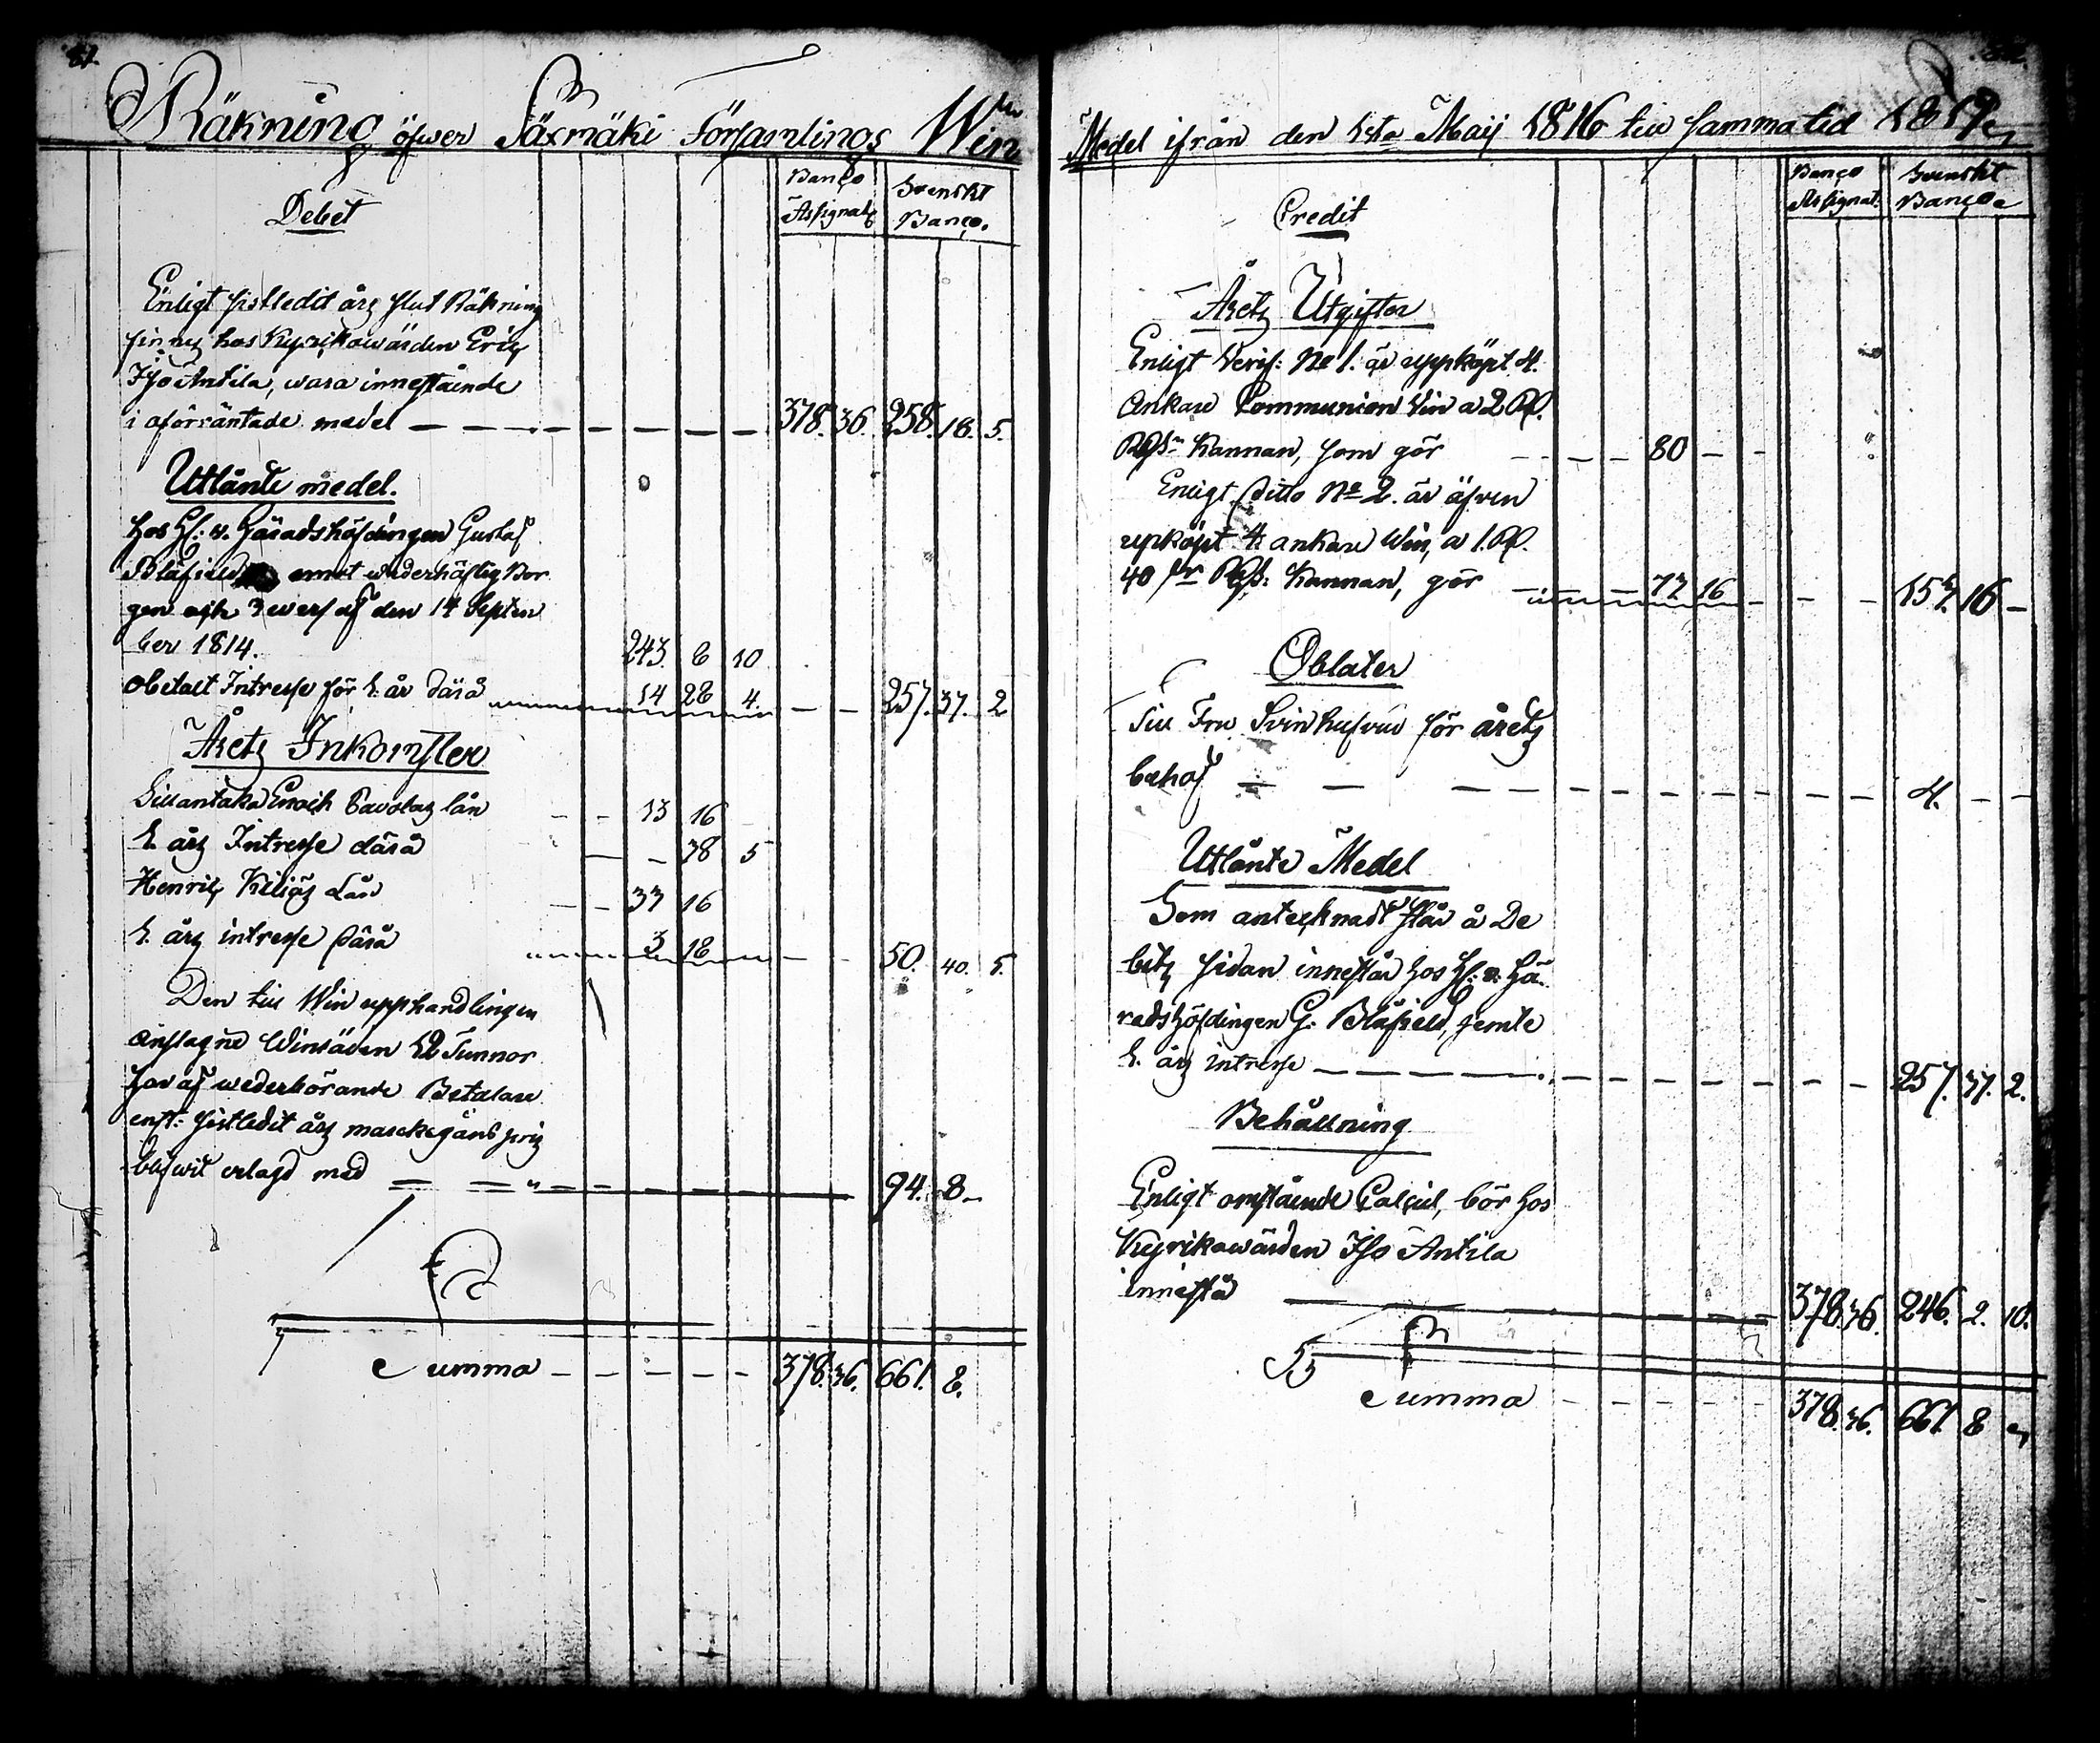 81.
Räkning öfwer Säxmäki Församlings Win
Debet
Banco Assignat:
Svenskt Banco.
Enligt sistledit års slut Räkning
finnes hos Kyrkowärden Eric
Iso Antila, wara innestående
i oförräntade medel — — — 378. 36. 258. 18. 5.
Utlånte medel.
hos H: v. Häradshöfdingen Gustaf
Blåfield emot wederhäftig Bor
gen och 3 wers af den 14 Septem
ber 1814. 243. 6 10
obetalt Intresse för 1. år därå 14 28 4. — — 257. 37. 2
Årets Inkomster
Enoch lån — — 13 16
1. års Intresse därå — — 38 5
Henric Kiliäs Lån — — 33 16
1. års intresse därå 3 18 — — 50. 40. 5.
Den till Win upphandlingen
anslagne Winsäden 12 Tunnor
har af wederbörande Betalare
enl: sistledit års markegångs pris
blifwit erlagd med — — 94. 8 —
Summa — — — — — 378. 36. 661. 8.
82.
Medel ifrån den 1sta Maij 1816 till samma tid 1817
Credit
Banco Assignat.
Svenskt Banco
Årets Utgifter
Enligt Verif: No 1. är uppköpt 4.
Ankare Communion Win a 2 Rd.
Rgs: Kannan, som gör — — — 80 — —
Enligt ditto No 2. är äfven
upköpt 4 ankare Win, a 1. Rd.
40 s Rgs: Kannan, gör — — 73 16 — — — 153. 16 —
Oblater
Till Fru Svinhufvud för årets
behof — — — — — 4. — —
Utlånte Medel
Som antecknadt står å De
bets sidan innestår hos H: v. Hä
radshöfdingen G: Blåfield, jemte
1. års intresse — — — — 257. 37. 2.
Behållning
Enligt omstående Calcul, bör hos
Kyrikowärden Iso Antila
innestå — — — 378. 36. 246. 2. 10.
Summa — — — — — 378. 36. 661 8